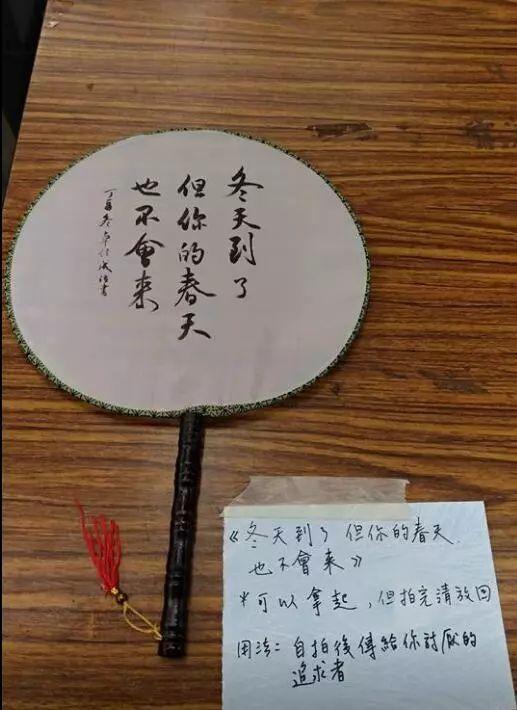 冬天到了
但你的春天
也不會來
《冬天到了 但你的春天
也不會來》
*可以拿起，但拍完請放回
用法：自拍後傳給你討厭的
追求者